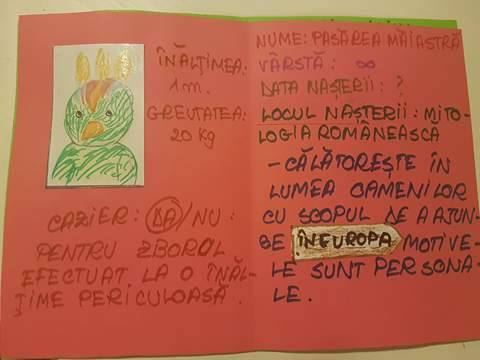 ÎNĂLȚIMEA:
1 m.
GREUTATEA:
20 Kg
CAZIER: DA/NU:
PENTRU ZBORUL
EFECTUAT LA O ÎNĂL-
ȚIME PERICULOASĂ.
NUME: PASĂREA MĂIASTRĂ
VÂRSTĂ: ∞
DATA NAȘTERII: ?
LOCUL NAȘTERII: MITO-
LOGIA ROMÂNEASCĂ
- CĂLĂTOREȘTE ÎN
LUMEA OAMENILOR
CU SCOPUL DE A AJUN-
GE ÎN EUROPA MOTIVE-
LE SUNT PERSONA-
LE.